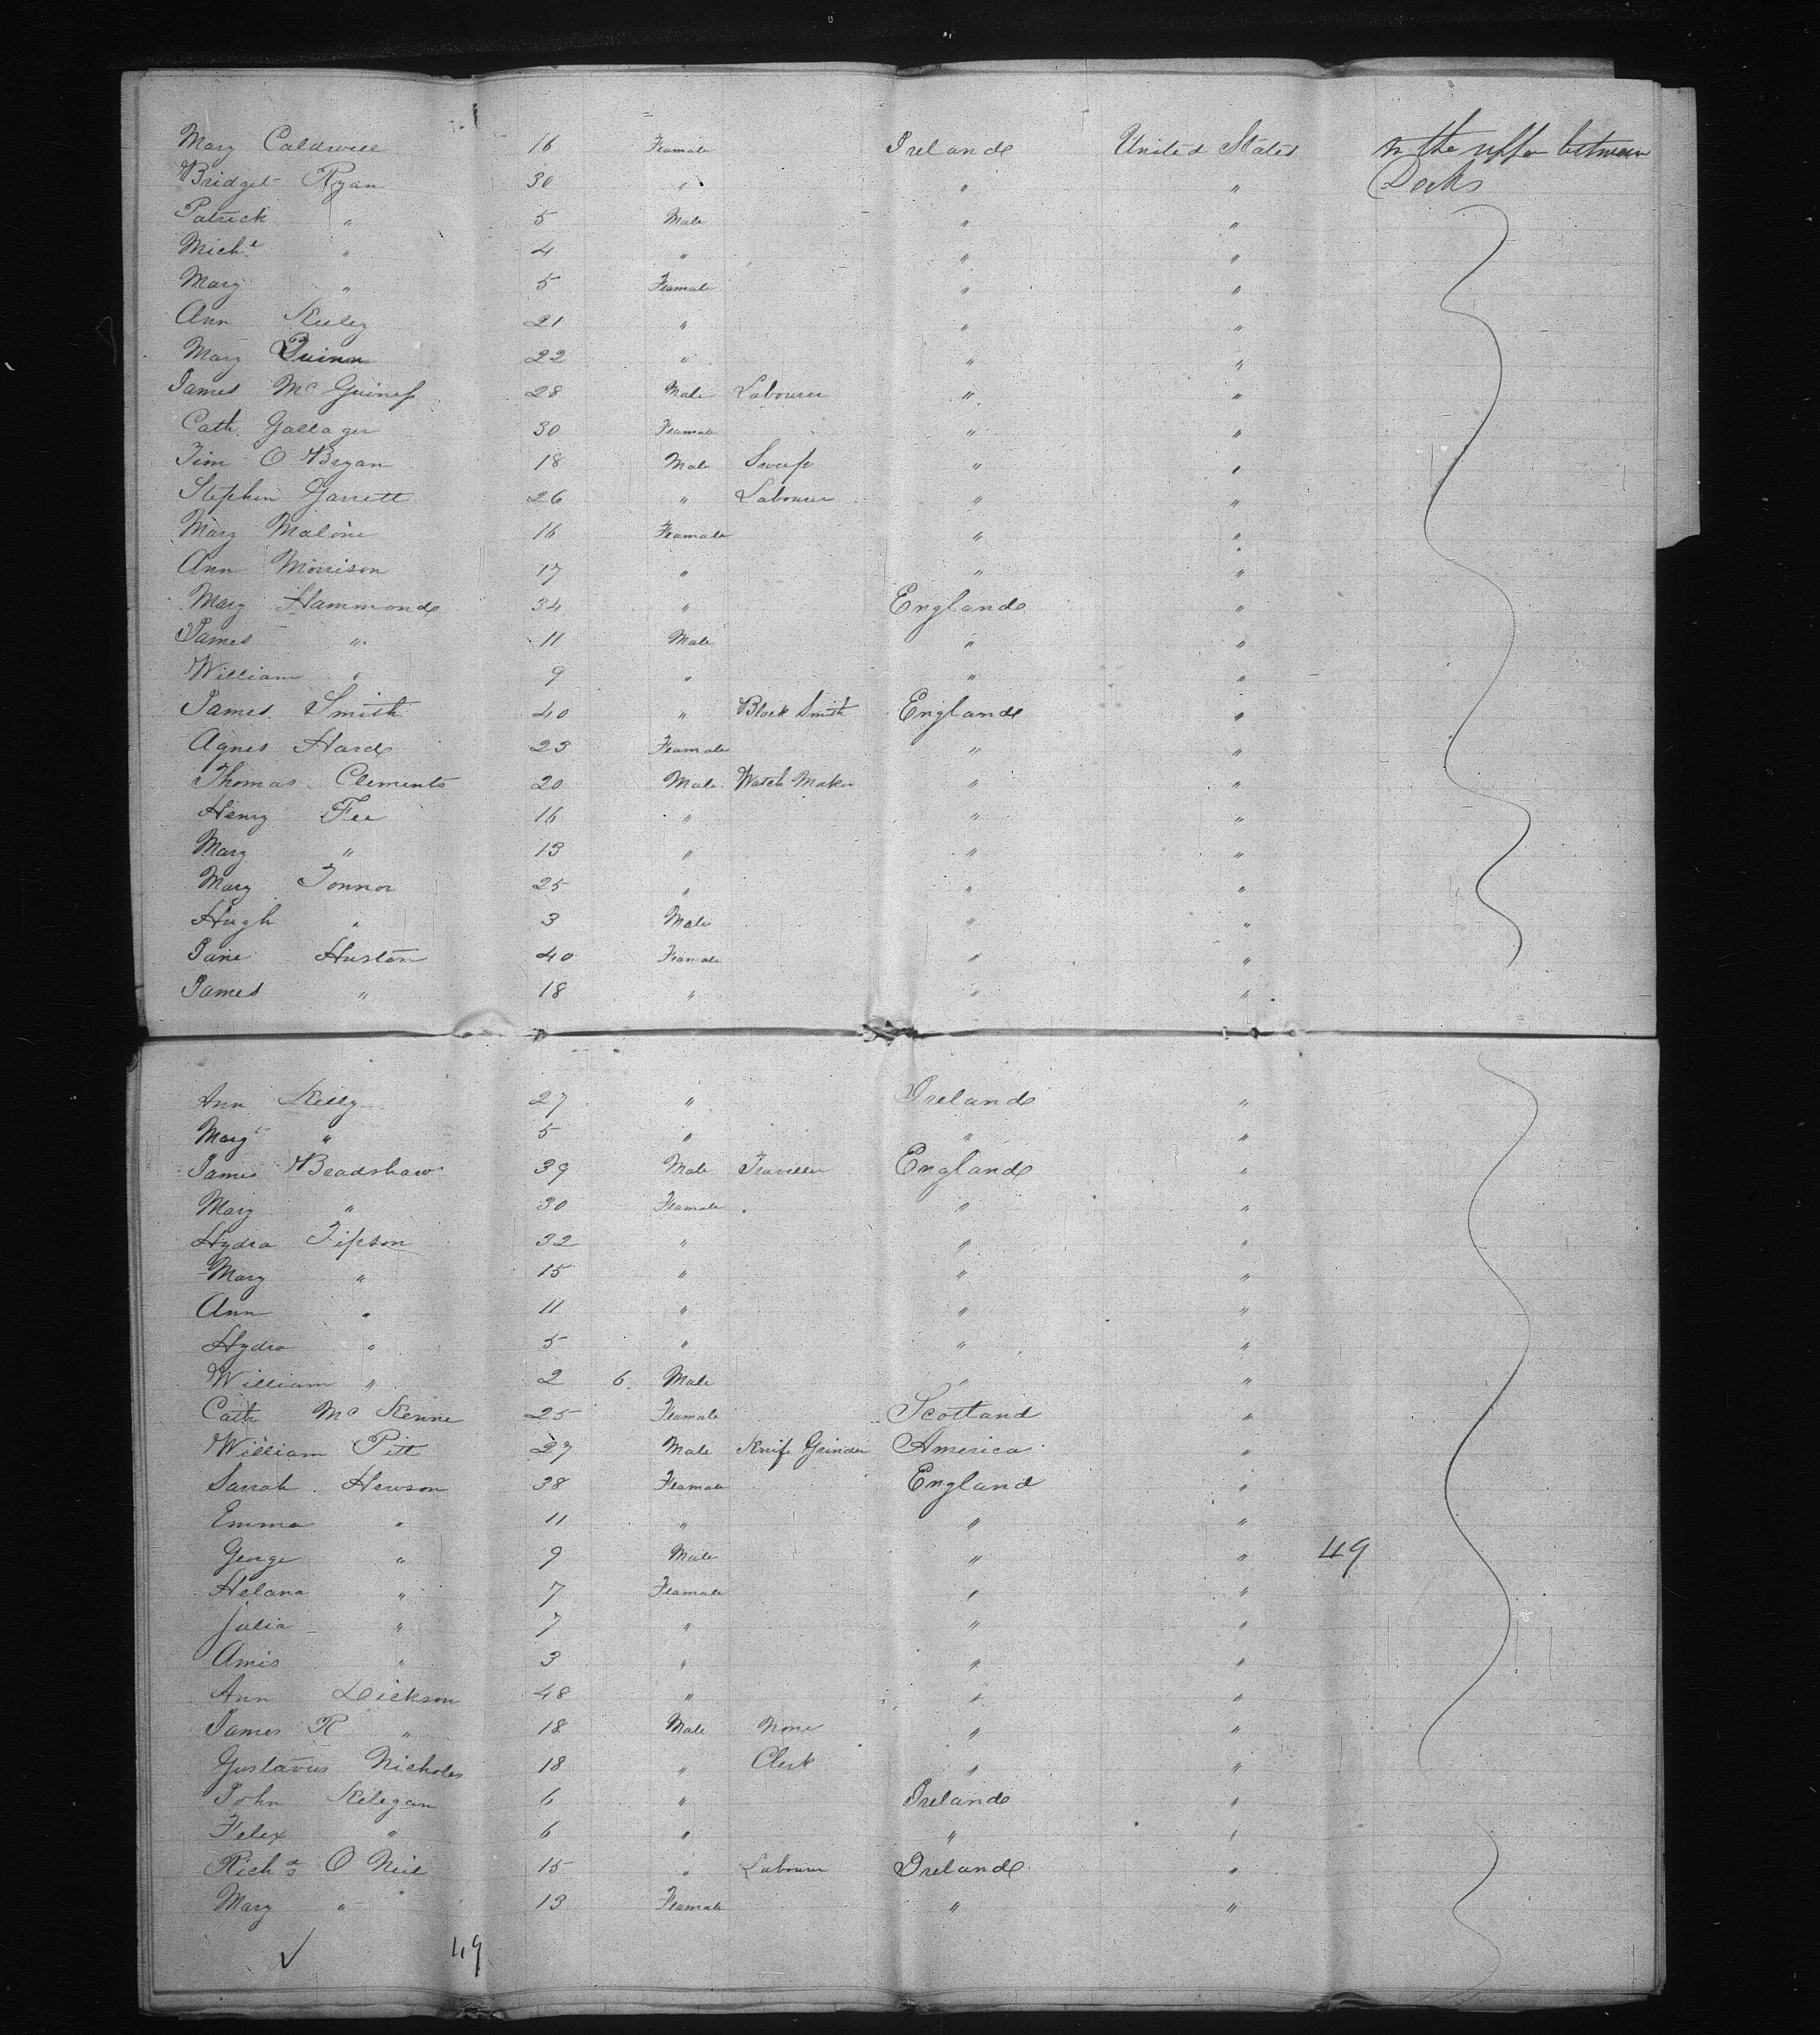 Mary Caldwell 16 Feamale Ireland United States in the upper between
Bridget Ryan 30 " " " Decks
Patrick " 5 Male " "
Mich.l " 4 " " "
Mary " 5 Feamale " "
Ann Keeley 21 " " "
Mary Quinn 22 " " "
James McGuiness 28 Male Labourer " "
Cath. Gallager 30 Feamale " "
Tim O Bryan 18 Male Sweep " "
Stephen Garrett 26 " Labourer " "
Mary Malone 16 Feamale " "
Ann Morrison 17 " " "
Mary Hammond 34 " England "
James " 11 Male " "
William " 9 " " "
James Smith 40 " Black Smith England "
Agnes Hard 23 Feamale " "
Thomas Clements 20 Male Watch Maker " "
Henry Fee 16 " " "
Mary " 13 " " "
Mary Tonnor 25 " " "
Hugh " 3 Male " "
Jane Huston 40 Feamale " "
James " 18 " " "
Ann Kelly 27 " Ireland "
Margt " 5 " " "
James Bradshaw 39 Male Traveller England "
Mary " 30 Feamale " "
Hydra Tipson 32 " " "
Mary " 15 " " "
Ann " 11 " " "
Hydra " 5 " " "
William " 2 6 Male " "
Cath McKenne 25 Feamale Scotland "
William Pitt 27 Male Knife Grinder America "
Sarrah Hewson 38 Feamale England "
Emma " 11 " " "
George " 9 Male " " 49
Helana " 7 Feamale " "
Julia " 7 " " "
Amis " 3 " " "
Ann Dickson 48 " " "
James R " 18 Male None " "
Gustavus Nicholes 18 " Clerk " "
John Kelegan 6 " Ireland "
Felex " 6 " " "
Richd O Neil 15 " Labourer Ireland "
Mary " 13 Feamale " "
49